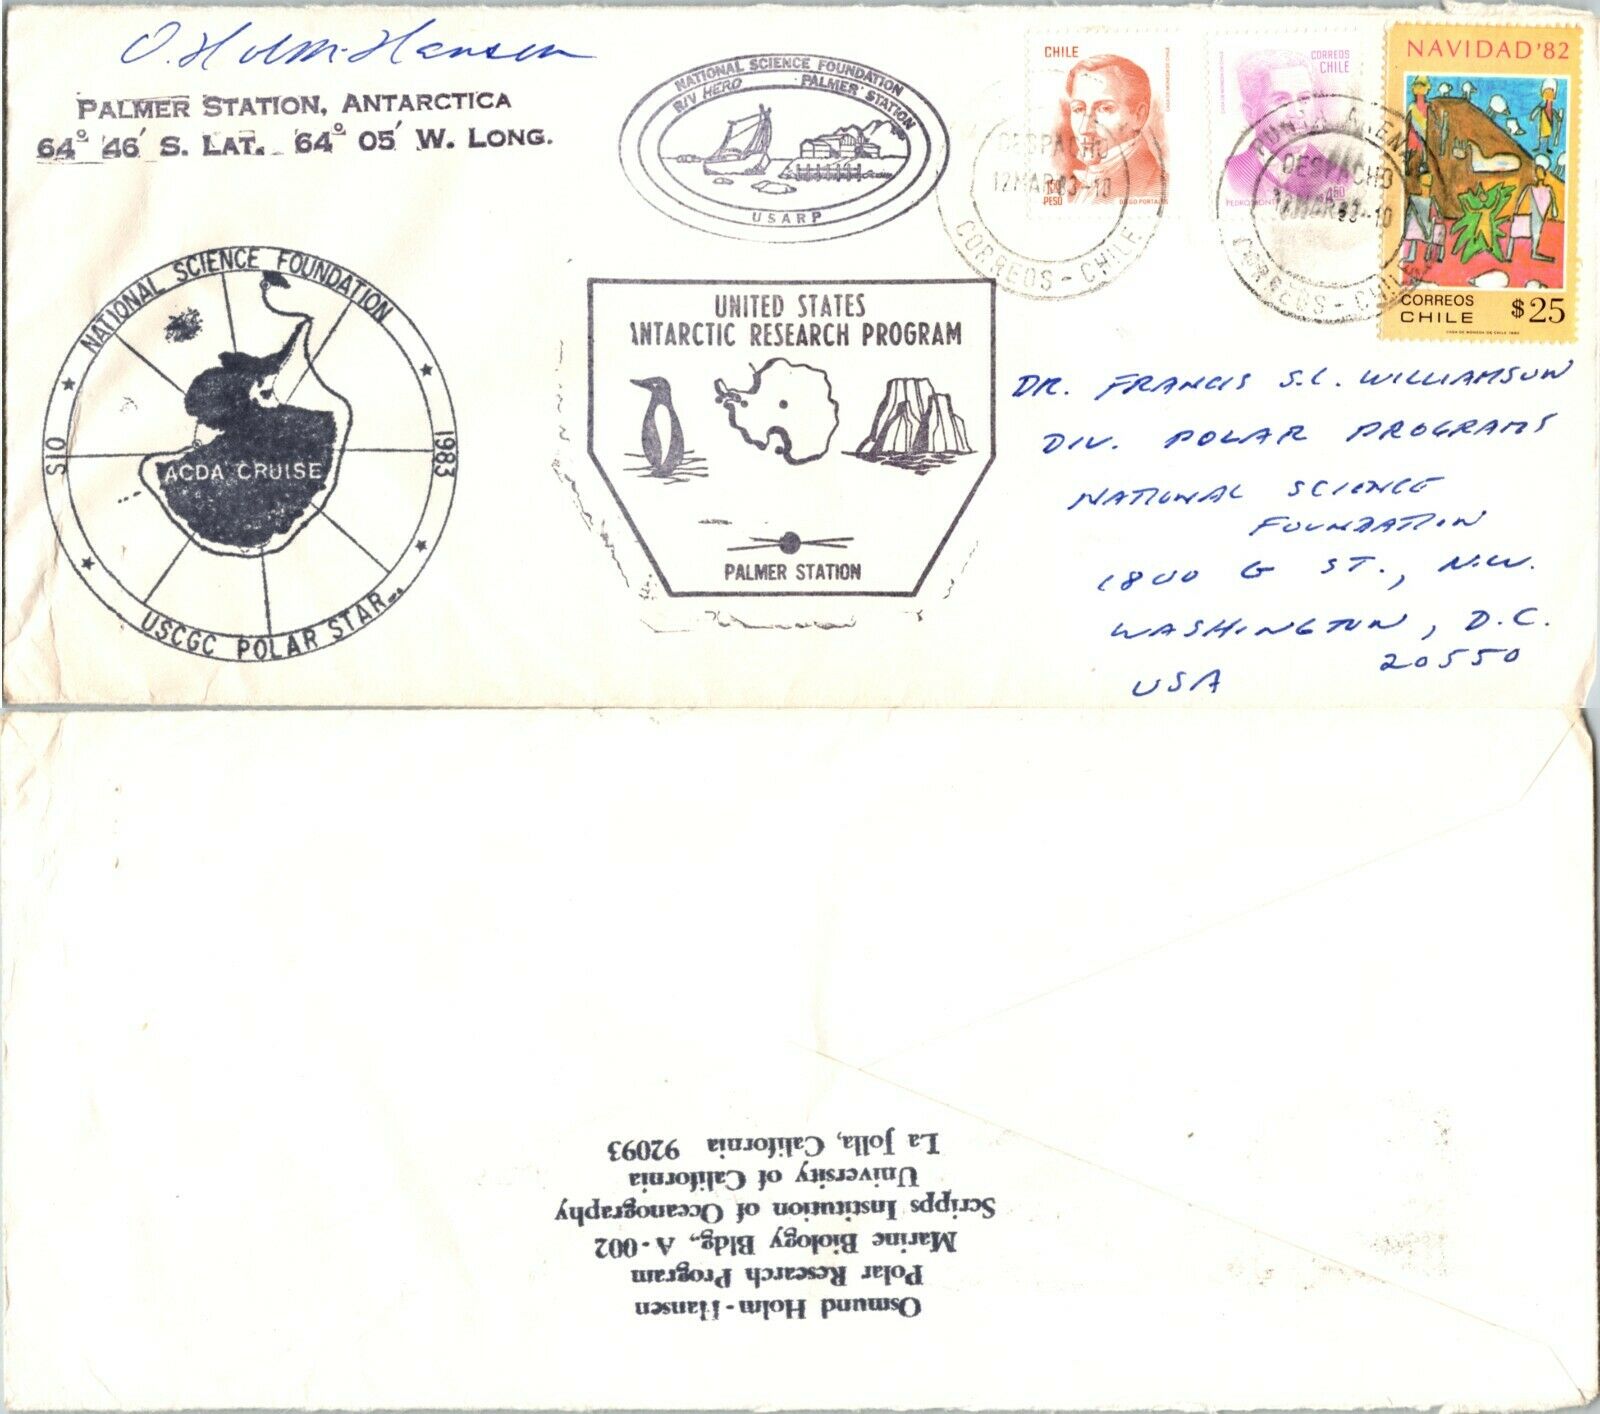 O. Holm-Hansen
PALMER STATION, ANTARCTICA
64° 46' S. LAT. 64° 05' W. LONG.
NATIONAL SCIENCE FOUNDATION
R/V HERO PALMER STATION
USARP
CHILE
PESO
DIEGO PORTALES
CASA DE MONEDA DE CHILE
CORREOS
CHILE
4.50
CASA DE MONEDA DE CHILE
NAVIDAD '82
CORREOS
CHILE
$25
CASA DE MONEDA DE CHILE 1982
DESPACHO
12 MAR 83-10
CORREOS - CHILE
PUNTA ARENAS
DESPACHO
MAR 83-10
CORREOS - CHILE
NATIONAL SCIENCE FOUNDATION
SIO
1983
ACDA CRUISE
USCGC POLAR STAR
UNITED STATES
ANTARCTIC RESEARCH PROGRAM
PALMER STATION
DR. FRANCIS S.L. WILLIAMSON
DIV. POLAR PROGRAMS
NATIONAL SCIENCE
FOUNDATION
1800 G ST., N.W.
WASHINGTON, D.C.
20550
USA
Osmund Holm-Hansen
Polar Research Program
Marine Biology Bldg., A-002
Scripps Institution of Oceanography
University of California
La Jolla, California 92093